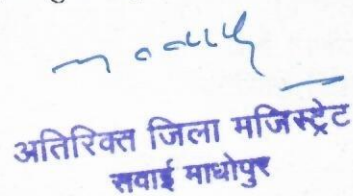 अतिरिक्त जिला मजिस्ट्रेट
सवाई माधोपुर